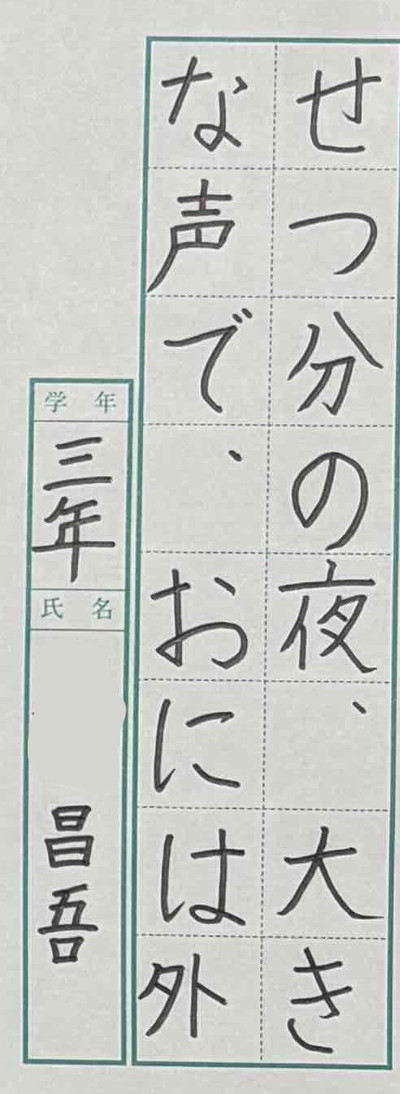 せつ分の夜、大き
な声で、おには外
学年
三年
氏名
昌吾